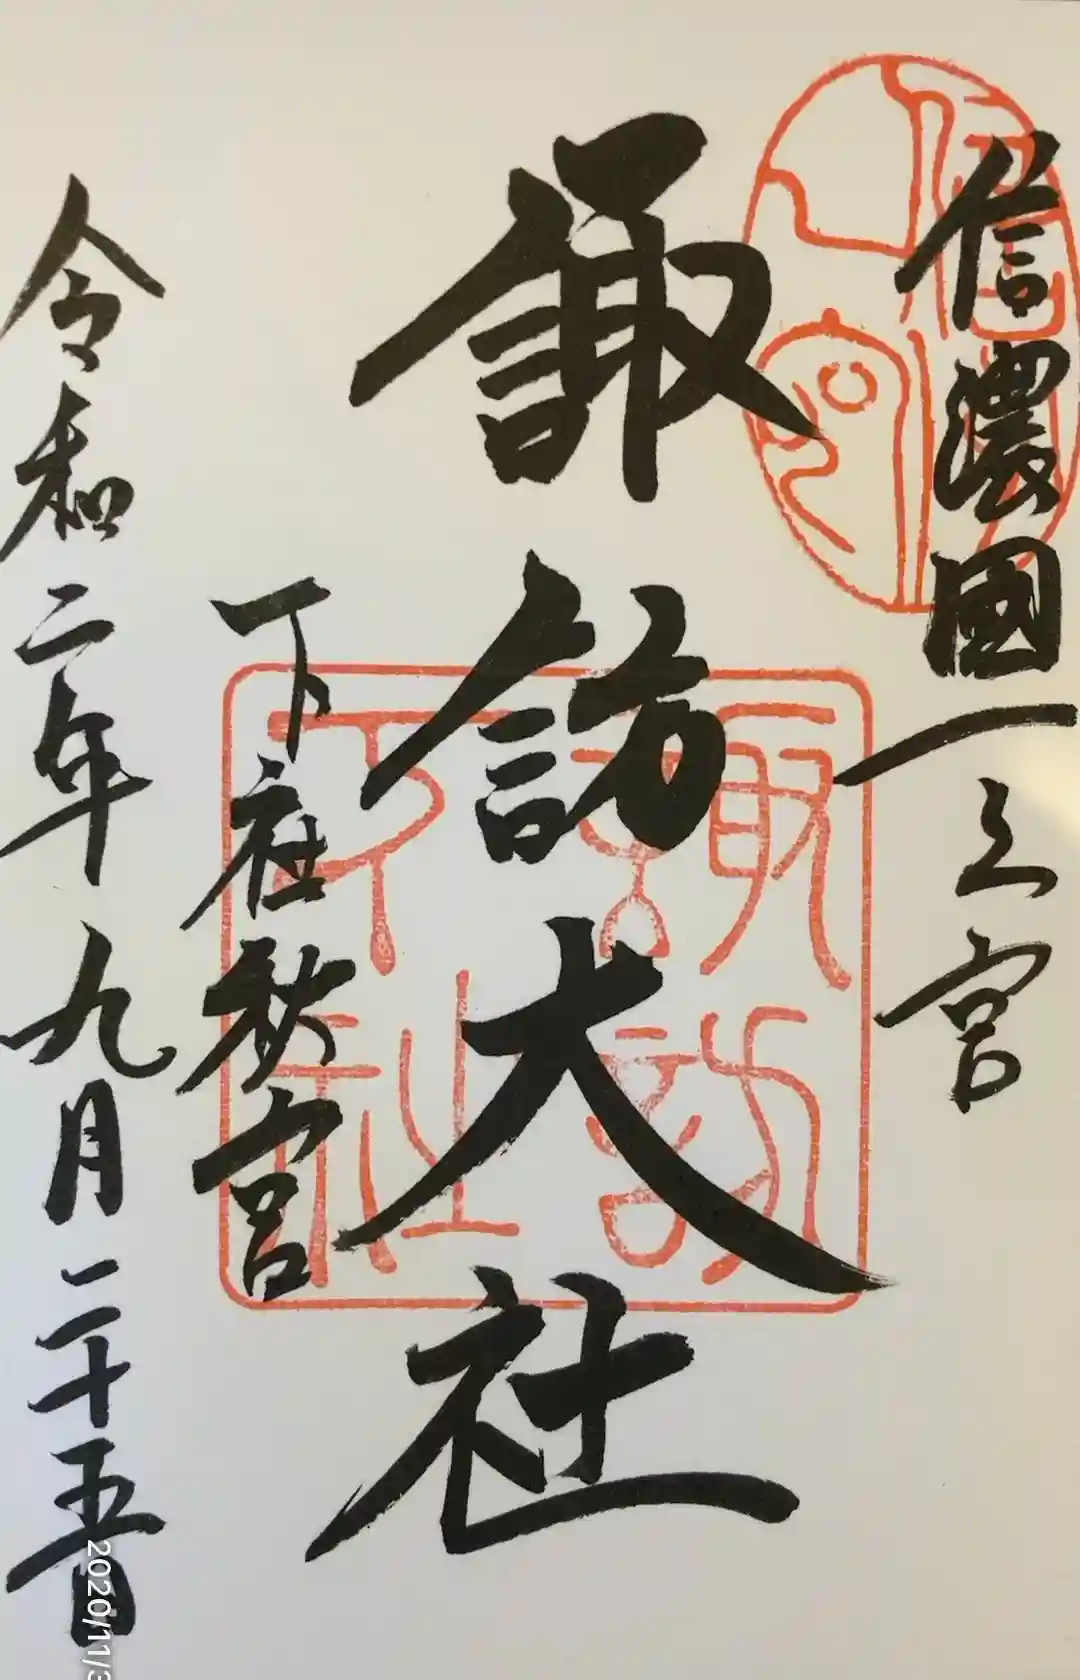 信濃國一之宮
諏訪大社
下社秋宮
令和二年九月二十五日
諏訪
下社
2020/11/3